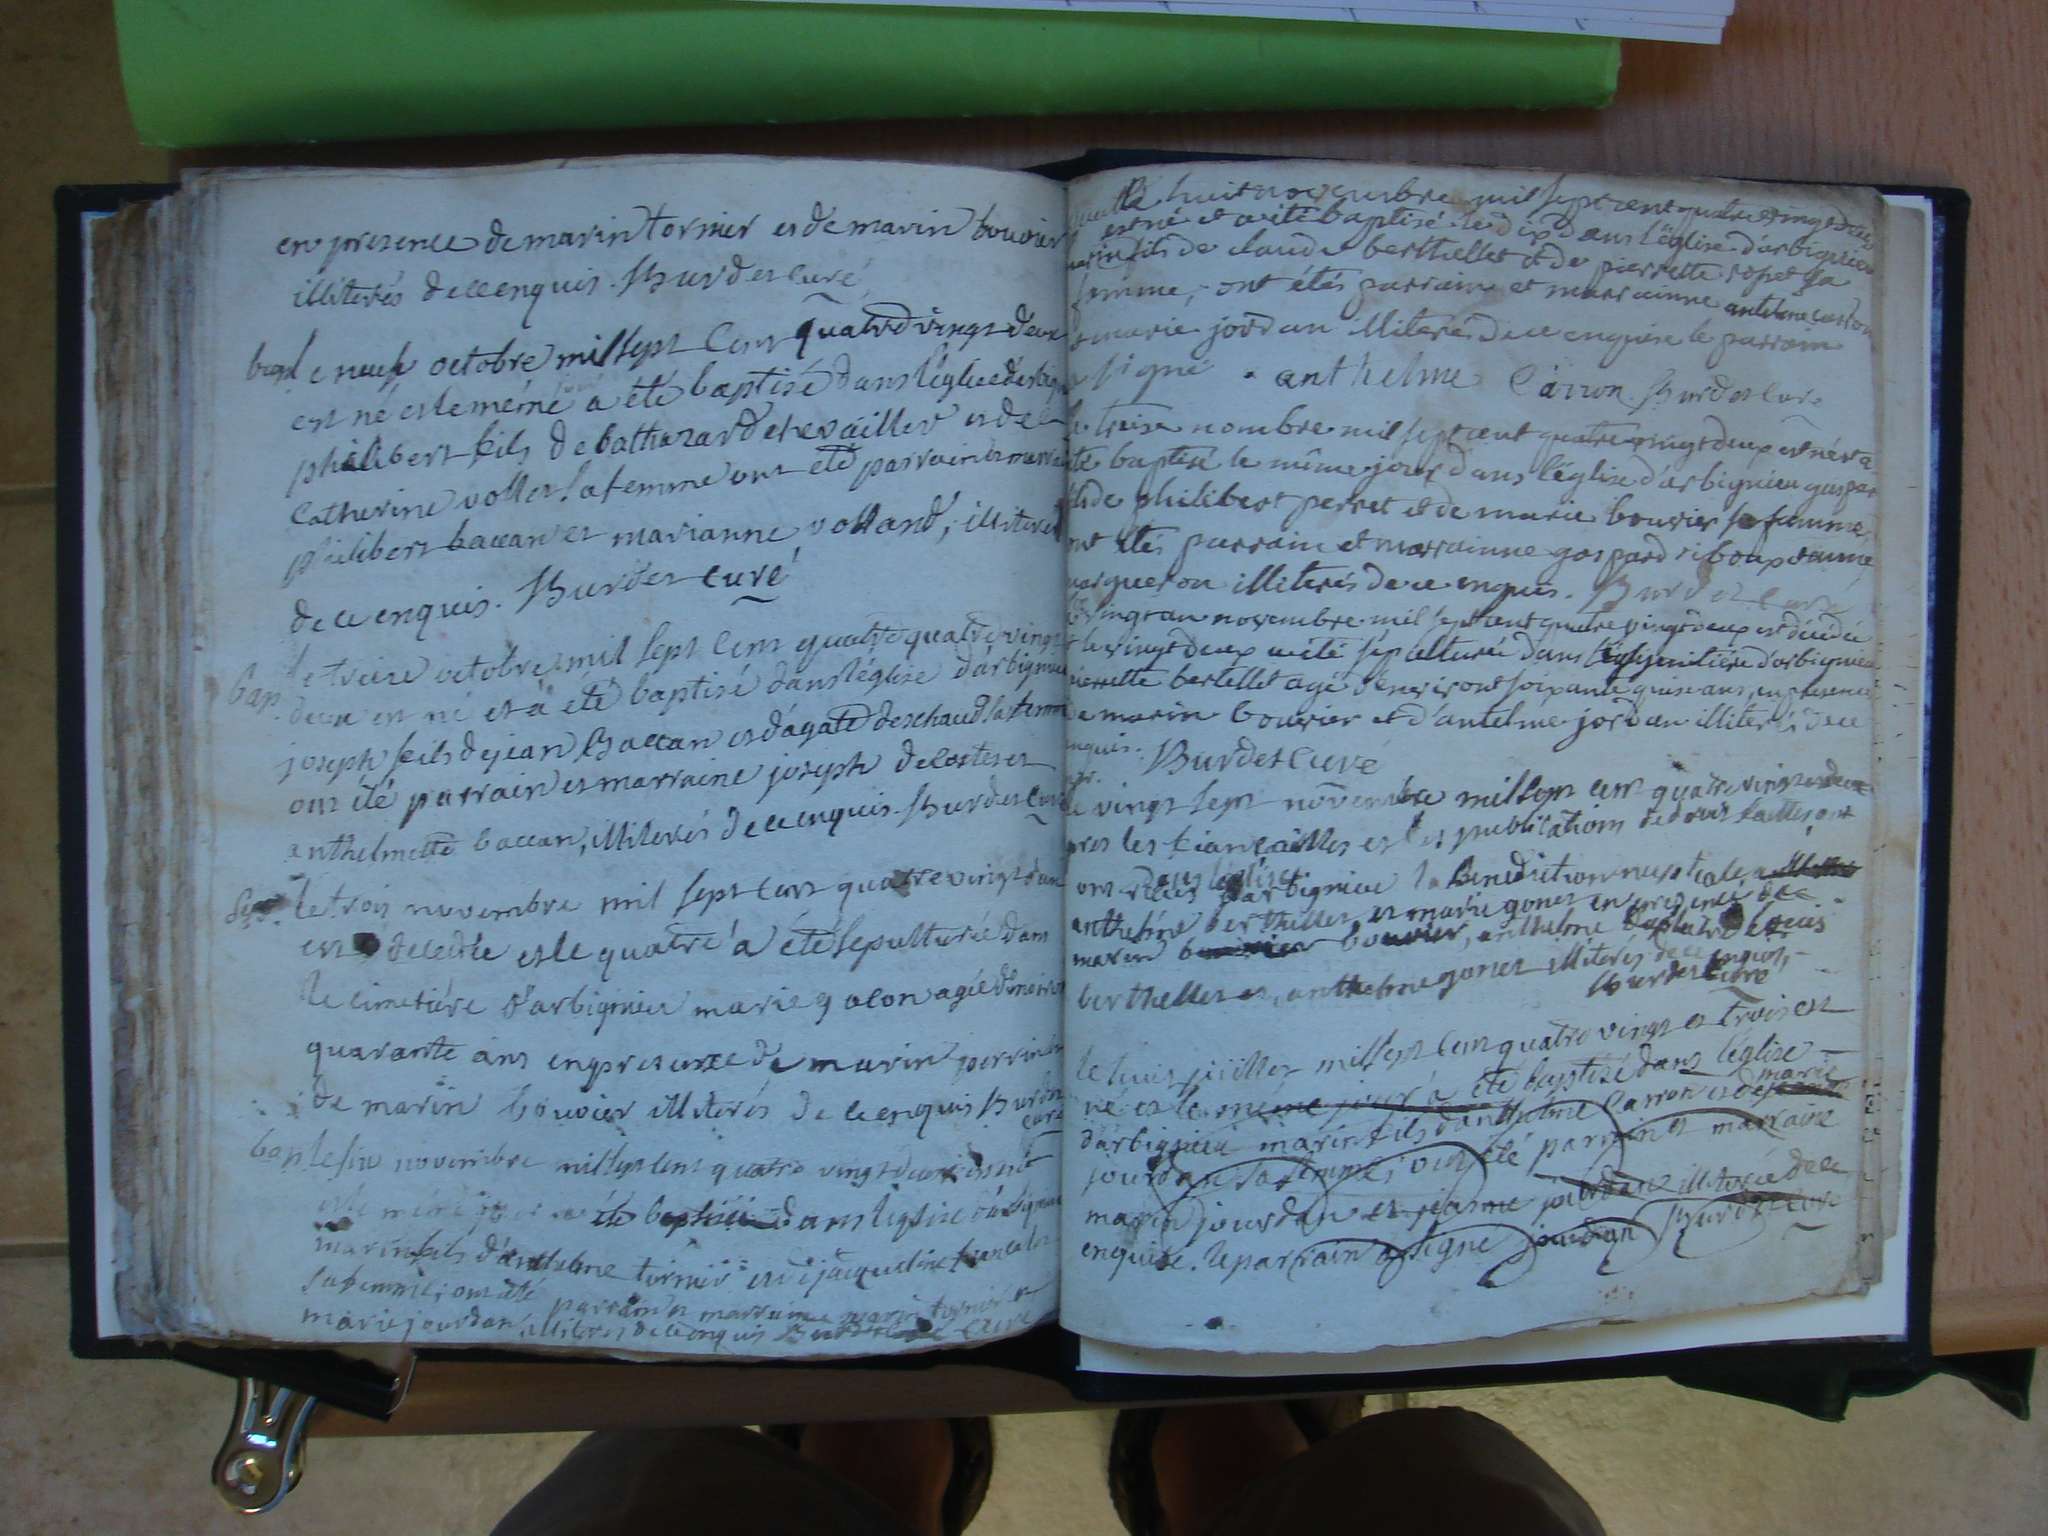 en presence de marin tornier et de marin bouvier
illiterés de ce enquis. Burdet curé
bap le neuf octobre mil sept cent quatre vingt deux
est né et le même jour a été baptisé dans l'église d'arbig
philibert fils de balthazard et de
Catherine vollet sa femme ont été parrain et marra
philibert baccan et marianne volland, illiteré
de ce enquis. Burdet curé
le treize octobre mil sept cent quatre quatre vingt
bap. deux est né et a été baptisé dans l'église d'arbignieu
joseph fils de jean Baccan et d'agate deschaud sa femme
ont été parrain et marraine joseph decoster et
anthelmette baccan, illiterés de ce enquis. Burdet curé
Sep. le trois novembre mil sept cent quatre vingt deux
est decedée et le quatre a été sepulturée dans
le cimetière d'arbignieu marie galon agée d'environ
quarante ans en presence de marin perrin et
de marin bouvier illiterés de ce enquis Burdet
curé
bap le six novembre mil sept cent quatre vingt deux est né
et le même jour a été baptisé dans l'église d'arbignieu
marin fils d'anthelme tornier et de jacqueline
sa femme; ont été parrain et marraine marin tornier et
marie jourdan, illiterés de ce enquis Burdet curé
Le huit novembre mil sept cent quatre vingt deux
est né et a été baptisé le dix dans l'église d'arbignieu
marin fils de claude berthellet et de pierrette ropet sa
femme, ont étés parrain et marrainne antelme carron
et marie jordan illiterés de ce enquise le parrain
a signé anthelme Carron. Burdet curé
le treize nombre mil sept cent quatre vingt deux est né et a
été baptisé le même jour dans l'église d'arbignieu gaspar
fils de philibert perret et de marie bouvier sa femme,
ont étés parrain et marrainne gaspard riboux
illiterés de ce enquis. Burdet curé
le vingt un novembre mil sept cent quatre vingt deux est décédée
et le vingt deux a été sépulturée dans le cimitière d'arbignieu
pierrette bertellet agé d'environt soixante quinse ans, en presence
de marin bouvier et d'antelme jordan illiterés de ce
enquis. Burdet curé
le vingt sept novembre mil sept cent quatre vingt et deux
apres les fiancailles et les publications de droit faittes, ont
dans l'église
ont reçus d'arbignieu la Benediction nuptiale
anthelme berthellet et marie gonet en presence de
marin bouvier, anthelme louis
berthellet et, anthelme gonet illiterés de ce enquis,
Burdet curé
le huit juillet mil sept cent quatre vingt et trois est
né et le même jour a été baptisé dans l'église
marie
d'arbignieu marin fils d'anthelme Carron et de
jourdan sa femme; ont été parrain et marraine
marin jourdan et jeanne jourdan illiterée de ce
enquise. le parrain a signé jourdan Burdet curé